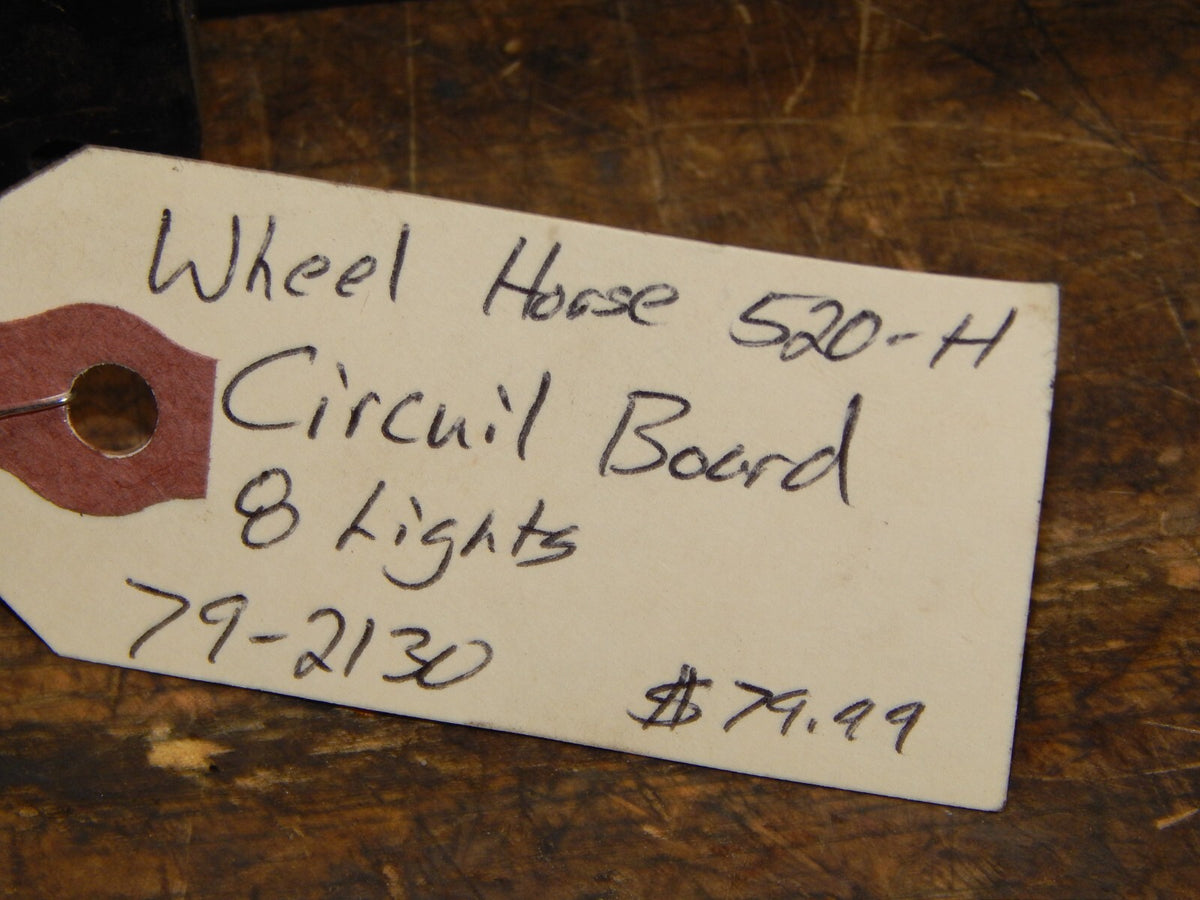 Wheel Horse 520-H
Circuit Board
8 Lights
79-2130
$79.99